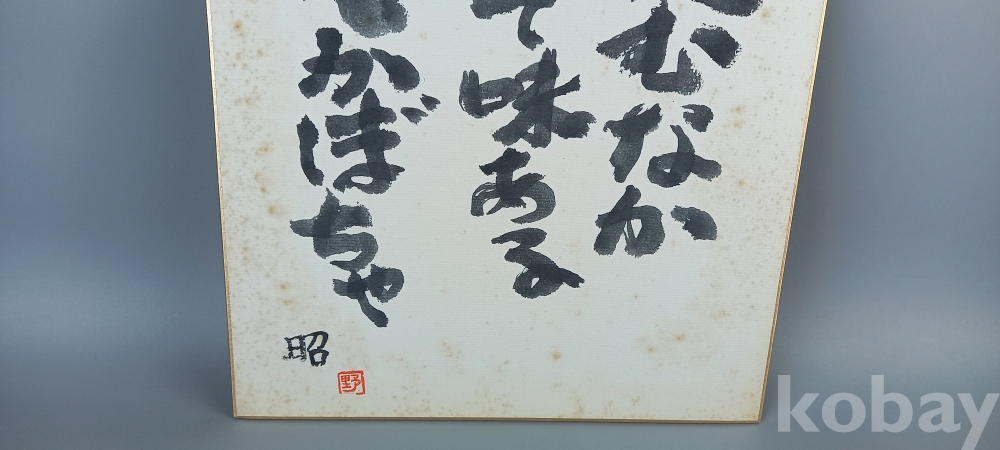 むなか
て味ある
かぼちゃ
昭
野
kobay